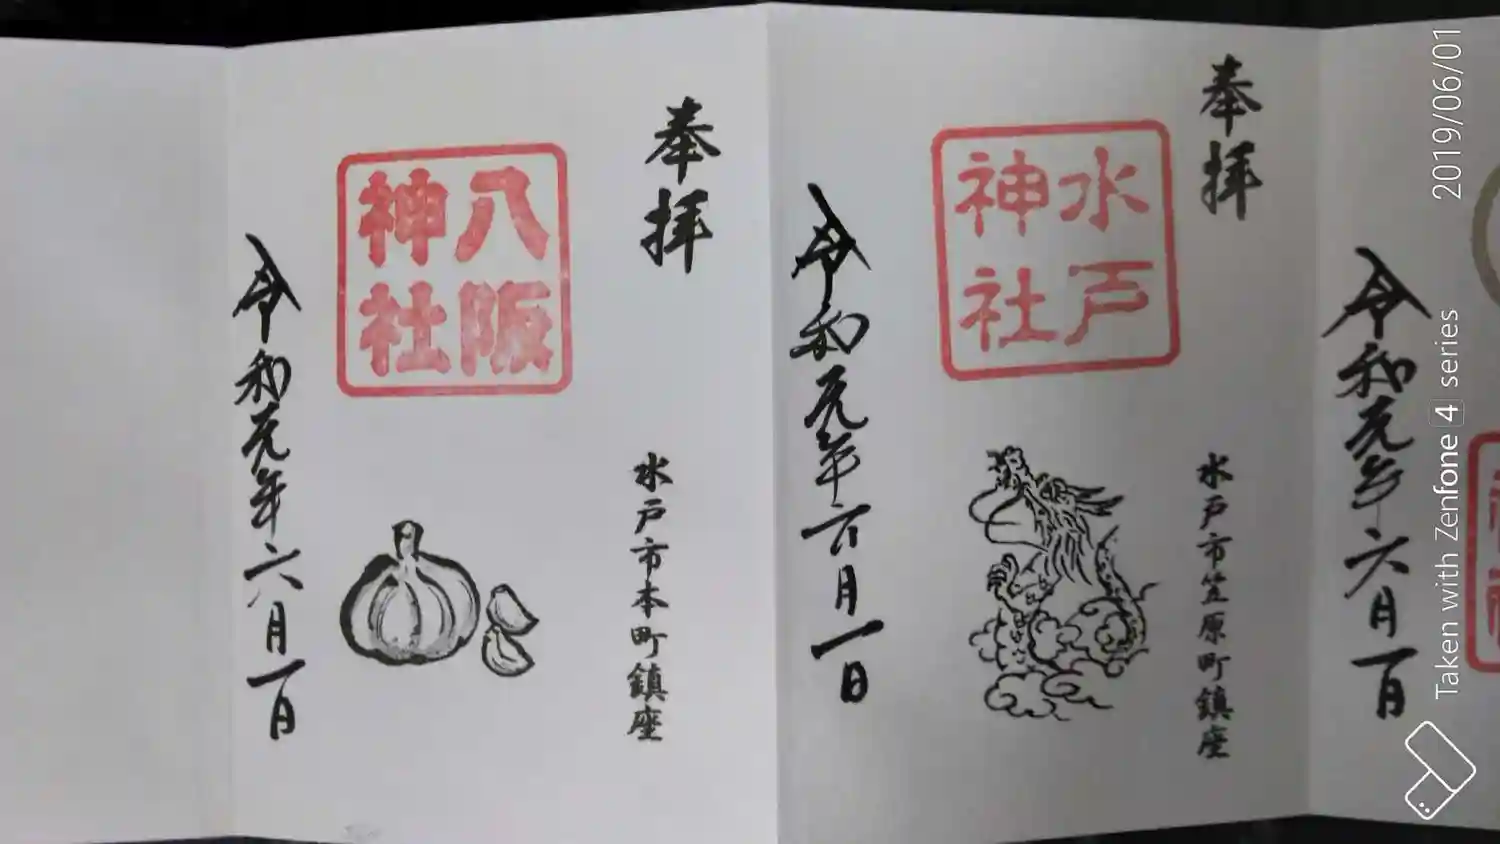 令和元年六月一日
奉拝
水戸神社
水戸市笠原町鎮座
令和元年六月一日
奉拝
八阪神社
水戸市本町鎮座
令和元年六月一日
2019/06/01
Taken with Zenfone 4 series